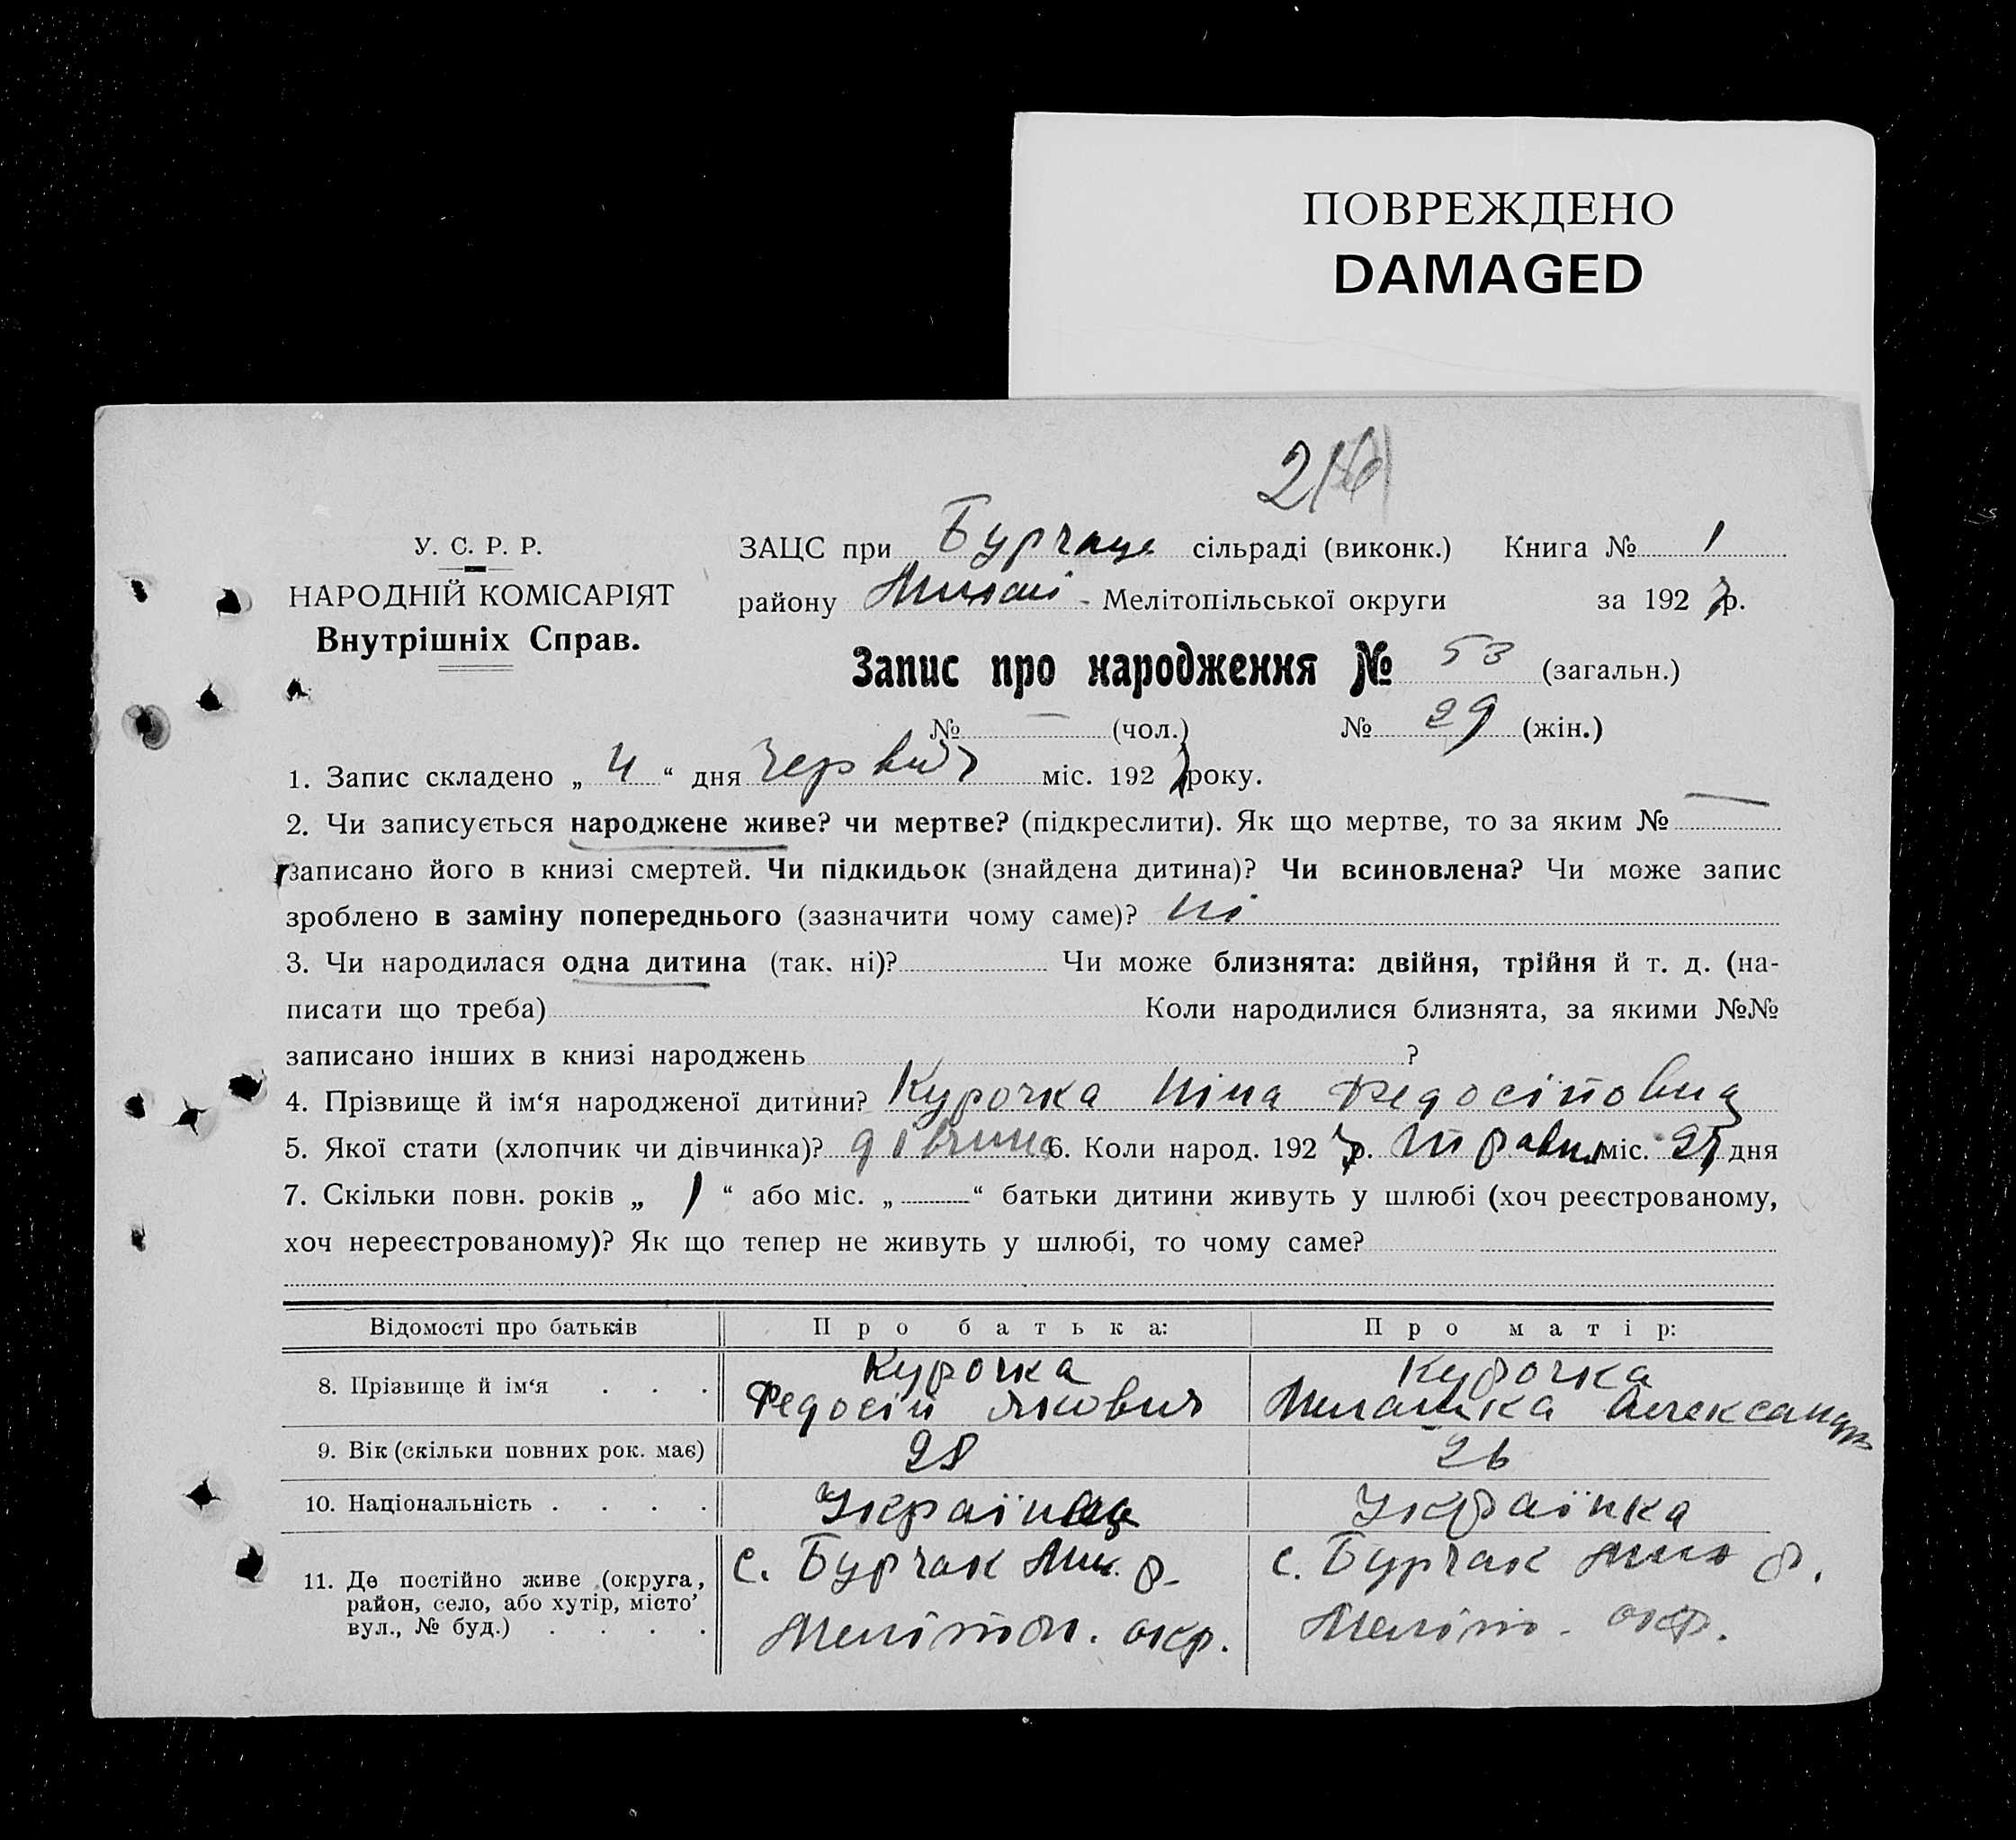 ПОВРЕЖДЕНО
DAMAGED
У. С. Р. Р.
НАРОДНІЙ КОМІСАРІЯТ
Внутрішніх Справ.
ЗАЦС при Бурчаце сільраді (виконк.) Книга № 1
району Михай - Мелітопільської округи за 192 7 р.
Запис про народження № 53 (загальн.)
№ — (чол.) № 29 (жін.)
1. Запис складено „ 4 “ дня червня міс. 192 7 року.
2. Чи записується народжене живе? чи мертве? (підкреслити). Як що мертве, то за яким № —
записано його в книзі смертей. Чи підкидьок (знайдена дитина)? Чи всиновлена? Чи може запис
зроблено в заміну попереднього (зазначити чому саме)? Ні
3. Чи народилася одна дитина (так, ні)? Чи може близнята: двійня, трійня й т. д. (на-
писати що треба) Коли народилися близнята, за якими №№
записано інших в книзі народжень ?
4. Прізвище й ім‘я народженої дитини? Курочка Ніна Федосіповна
5. Якої стати (хлопчик чи дівчинка)? дівчина 6. Коли народ. 192 7 р. травня міс. дня
7. Скільки повн. років „ 1 “ або міс. „ “ батьки дитини живуть у шлюбі (хоч реєстрованому,
хоч нереєстрованому)? Як що тепер не живуть у шлюбі, то чому саме?
Відомості про батьків Про батька: Про матір:
8. Прізвище й ім‘я . . . Курочка Федосій Якович Курочка Милашка Александр
9. Вік (скільки повних рок. має) 28 26
10. Національність . . . . Українец Українка
11. Де постійно живе (округа, район, село, або хутір, місто’ вул., № буд.) . . . . с. Бурчак Мих. р. Мелітоп. окр. с. Бурчак Мих р. Меліт. окр.